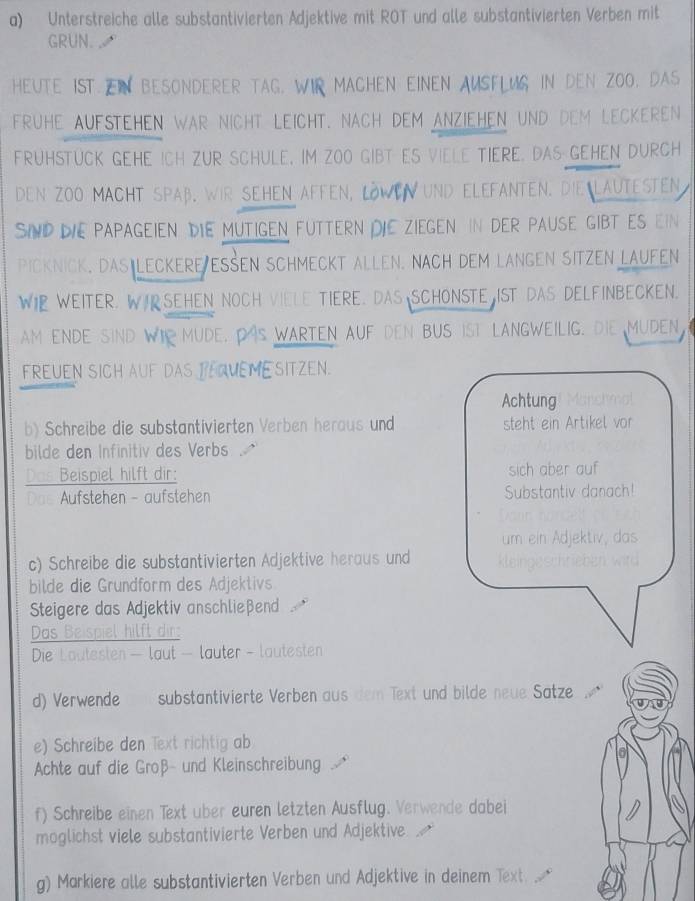 a) Unterstreiche alle substantivierten Adjektive mit ROT und alle substantivierten Verben mit
GRÜN.
HEUTE IST EIN BESONDERER TAG. WIR MACHEN EINEN AUSFLUG IN DEN ZOO. DAS
FRÜHE AUFSTEHEN WAR NICHT LEICHT. NACH DEM ANZIEHEN UND DEM LECKEREN
FRÜHSTÜCK GEHE ICH ZUR SCHULE. IM ZOO GIBT ES VIELE TIERE. DAS GEHEN DURCH
DEN ZOO MACHT SPAβ. WIR SEHEN AFFEN, LÖWEN UND ELEFANTEN. DIE LAUTESTEN
SIND DIE PAPAGEIEN. DIE MUTIGEN FÜTTERN DIE ZIEGEN. IN DER PAUSE GIBT ES EIN
PICKNICK. DAS LECKERE ESSEN SCHMECKT ALLEN. NACH DEM LANGEN SITZEN LAUFEN
WIR WEITER. WIR SEHEN NOCH VIELE TIERE. DAS SCHÖNSTE IST DAS DELFINBECKEN.
AM ENDE SIND WIR MÜDE. DAS WARTEN AUF DEN BUS IST LANGWEILIG. DIE MÜDEN
FREUEN SICH AUF DAS BEQUEME SITZEN.
b) Schreibe die substantivierten Verben heraus und
bilde den Infinitiv des Verbs.
Das Beispiel hilft dir:
Das Aufstehen - aufstehen
Achtung! Manchmal
steht ein Artikel vor
sich aber auf
Substantiv danach!
um ein Adjektiv, das
kleingeschrieben wird
c) Schreibe die substantivierten Adjektive heraus und
bilde die Grundform des Adjektivs.
Steigere das Adjektiv anschlieβend
Das Beispiel hilft dir:
Die Lautesten - laut - lauter - lautesten
d) Verwende substantivierte Verben aus dem Text und bilde neue Sätze
e) Schreibe den Text richtig ab
Achte auf die Groβ- und Kleinschreibung
f) Schreibe einen Text über euren letzten Ausflug. Verwende dabei
möglichst viele substantivierte Verben und Adjektive
g) Markiere alle substantivierten Verben und Adjektive in deinem Text.